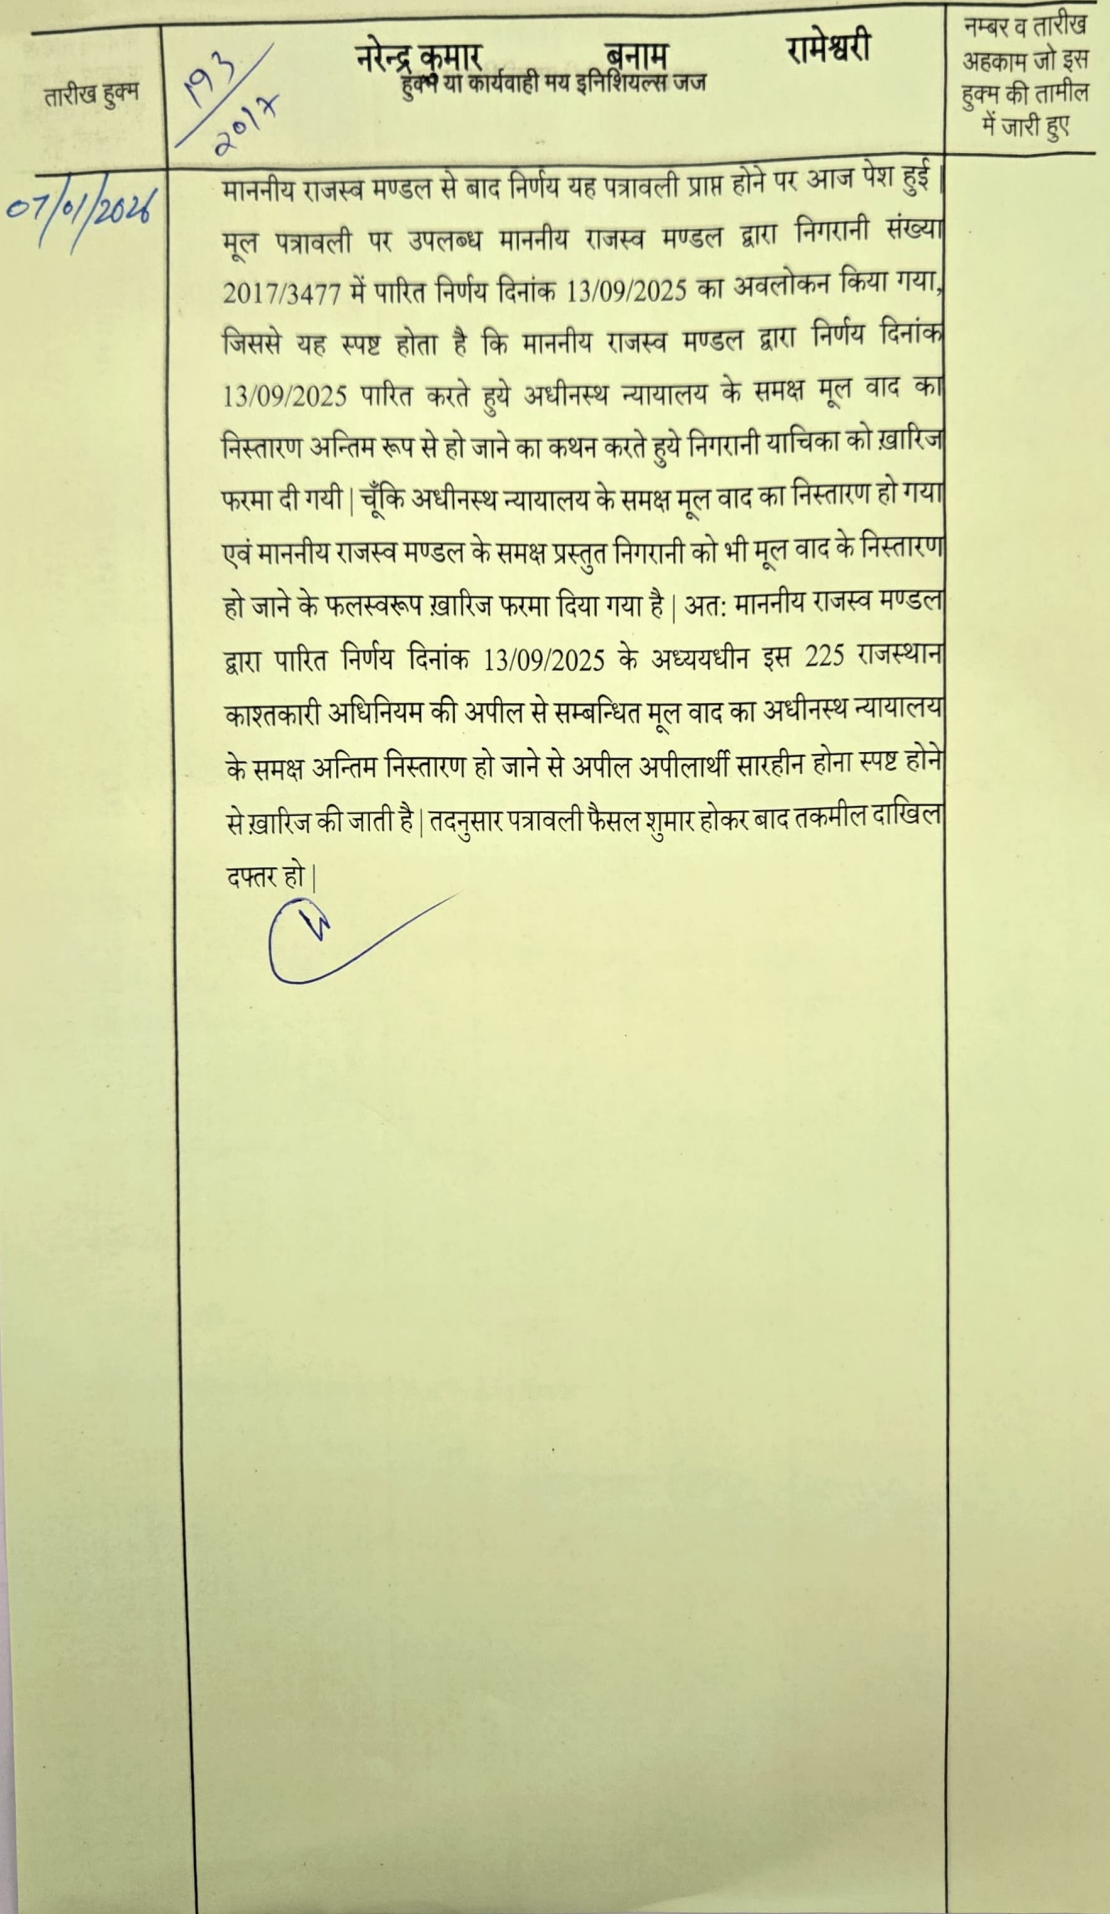 तारीख हुक्म
193
2017
नरेन्द्र कुमार बनाम रामेश्वरी
हुक्म या कार्यवाही मय इनिशियल्स जज
नम्बर व तारीख
अहकाम जो इस
हुक्म की तामील
में जारी हुए
07/01/2026
माननीय राजस्व मण्डल से बाद निर्णय यह पत्रावली प्राप्त होने पर आज पेश हुई |
मूल पत्रावली पर उपलब्ध माननीय राजस्व मण्डल द्वारा निगरानी संख्या
2017/3477 में पारित निर्णय दिनांक 13/09/2025 का अवलोकन किया गया,
जिससे यह स्पष्ट होता है कि माननीय राजस्व मण्डल द्वारा निर्णय दिनांक
13/09/2025 पारित करते हुये अधीनस्थ न्यायालय के समक्ष मूल वाद का
निस्तारण अन्तिम रूप से हो जाने का कथन करते हुये निगरानी याचिका को ख़ारिज
फरमा दी गयी | चूँकि अधीनस्थ न्यायालय के समक्ष मूल वाद का निस्तारण हो गया
एवं माननीय राजस्व मण्डल के समक्ष प्रस्तुत निगरानी को भी मूल वाद के निस्तारण
हो जाने के फलस्वरूप ख़ारिज फरमा दिया गया है | अत: माननीय राजस्व मण्डल
द्वारा पारित निर्णय दिनांक 13/09/2025 के अध्ययधीन इस 225 राजस्थान
काश्तकारी अधिनियम की अपील से सम्बन्धित मूल वाद का अधीनस्थ न्यायालय
के समक्ष अन्तिम निस्तारण हो जाने से अपील अपीलार्थी सारहीन होना स्पष्ट होने
से ख़ारिज की जाती है | तदनुसार पत्रावली फैसल शुमार होकर बाद तकमील दाखिल
दफ्तर हो |